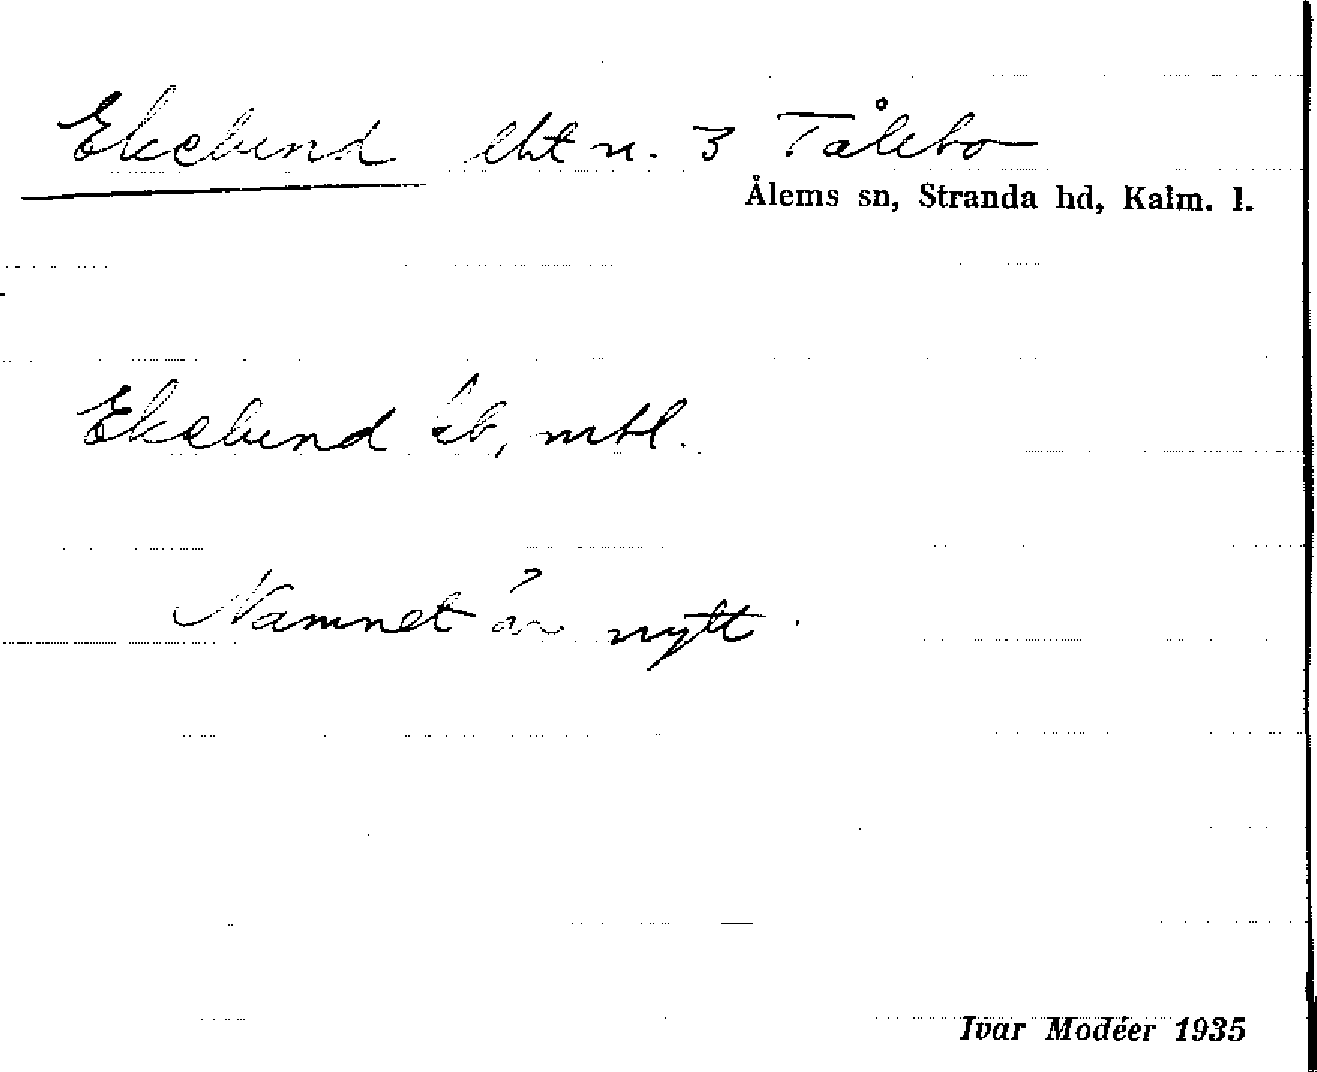 Ekelund lht n. 3 Tålebo
Ålems sn, Stranda hd, Kalm. l.
Ekelund kb, mtl.
Namnet är nytt.
Ivar Modéer 1935